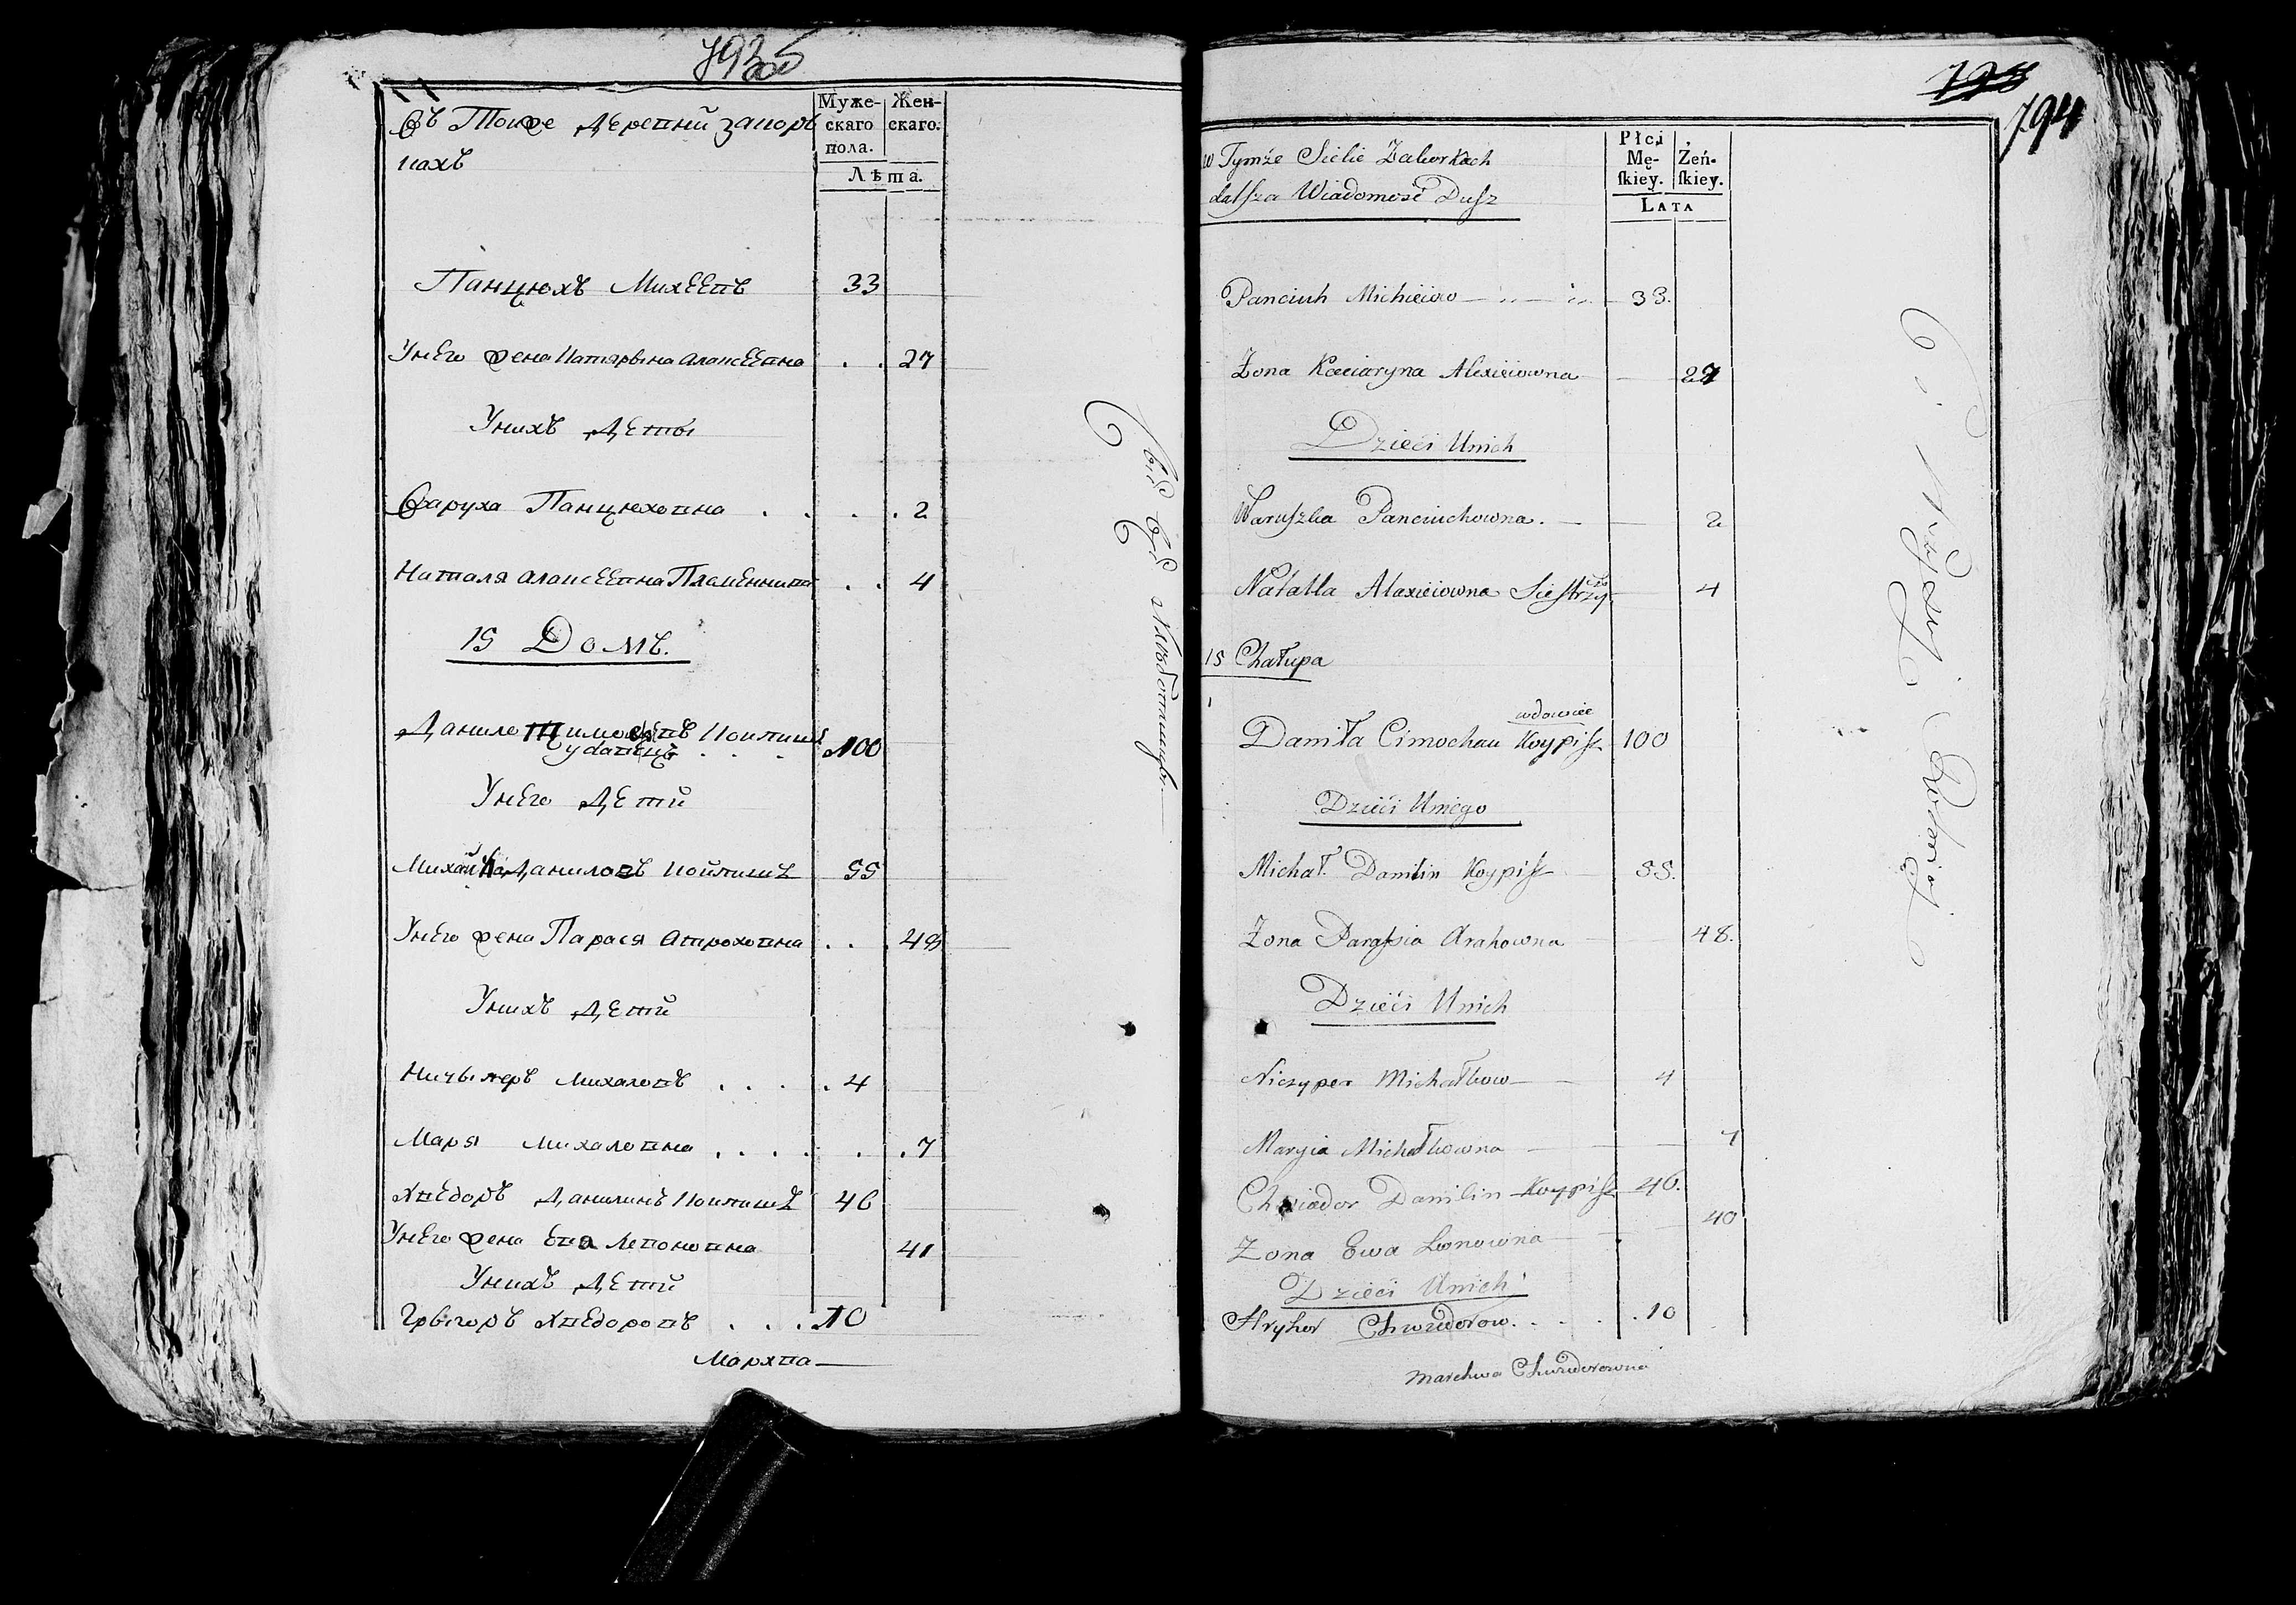 793
Въ Тойже Деревни Заборъ
кахъ
Муже-
скаго
пола.
Жен-
скаго.
Лѣта.
Панцюхъ Михеевъ 33
У него жена Катарына Алаксеевна . . 27
У нихъ Деты
Варуха Панцюховна . . . . 2
Наталя Алаксеевна Племенница . . 4
15 Домъ.
Данило Тимохевъ Койпишъ
удавецъ . . . 100
У него Дети
Михайла Даниловъ Койпишъ 55
У него жена Парася Атроховна . . . 48
У нихъ Дети
Ничыперъ Михаловъ . . . . 4
Маря Михаловна . . . . . . 7
Хведоръ Данилинъ Койпишъ 46
У него жена Ева Левоновна 41
У нихъ Дети
Грыгоръ Хведоровъ . . . 10
Мархва
794
w Tymże Sielie Zaborkach
dalsza Wiadomość Dusz
Płci
Mę-
skiey.
Żeń-
skiey.
LATA
Panciuh Michieiow 33.
Żona Kaciaryna Alexieiowna 27
Dzieci Unich
Waruszka Panciuchowna. 2
Natalla Alaxieiowna Siestrzy 4
15 Chałupa
wdowiec
Daniła Cimochau Koypisz 100
Dzieci Uniego
Michał. Danilin Koypisz 55.
Żona Parasia Arahowna 48.
Dzieci Unich
Niczyper Michałkow 4
Maryia Michałkowna 7
Chwiedor Danilin Koypisz 46.
40
Żona Ewa Lewonowna
Dzieci Unich
Hryhor Chwiedorow. . . . . 10
Marchwa Chwiedorowna